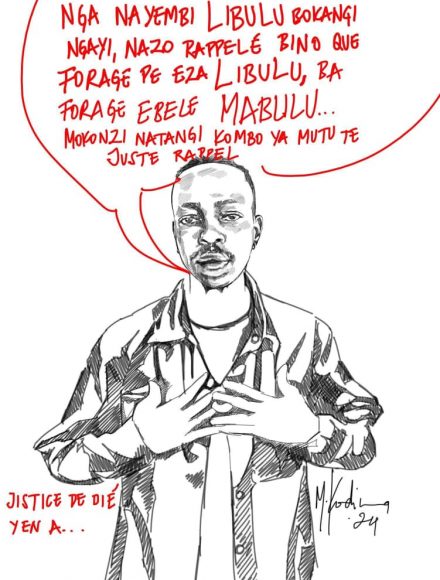 NGA NAYEMBI LIBULU BOKANGI
NGAYI, NAZO RAPPELÉ BINO QUE
FORAGE PE EZA LIBULU, BA
FORAGE EBELE MABULU...
MOKONZI NATANGI KOMBO YA MUTU TE
JUSTE RAPPEL
JISTICE DE DIÉ
YEN A...
'24